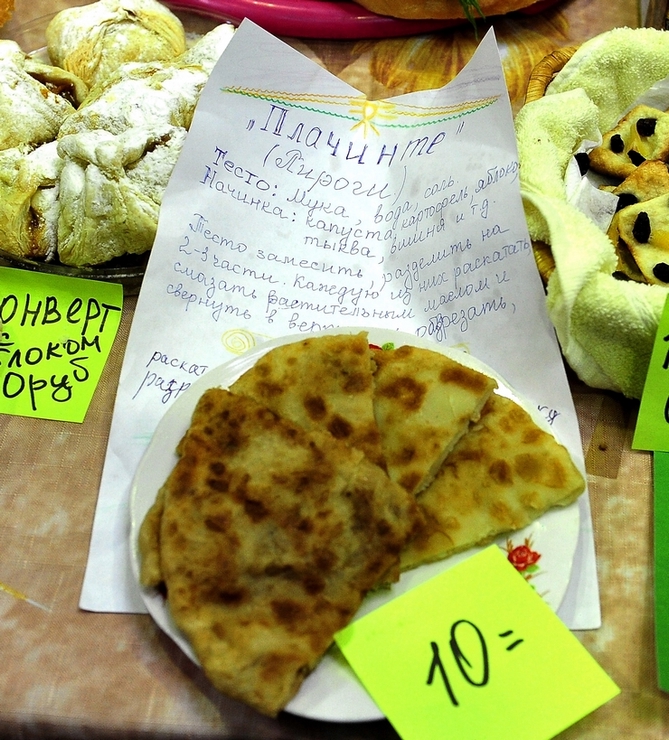 „Плачинте"
(Пироги)
Тесто: Мука, вода, соль.
Начинка: капуста, картофель, яблоко,
тыква, вишня и т.д.
Тесто замесить, разделить на
2-3 части. Каждую из них раскатать
смазать растительным маслом и
свернуть в разрезать,
раскат
разр
онверт
локом
оруб
10=